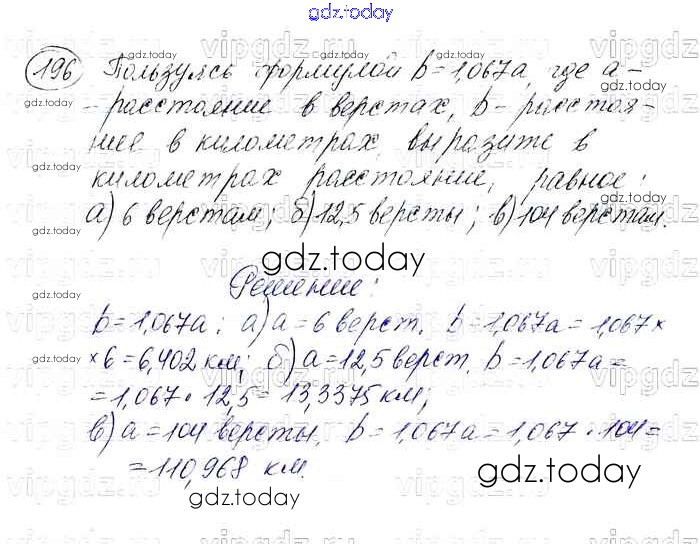 gdz.today
196 Пользуясь формулой b=1,067a, где a-
расстояние в верстах, b- расстоя-
ние в километрах, выразите в
километрах расстояние, равное:
а) 6 верстам; б) 12,5 версты; в) 104 верстам.
gdz.today
Решение:
b=1,067a; а) a=6 верст, b=1,067a=1,067×
×6=6,402 км; б) a=12,5 верст, b=1,067a=
=1,067·12,5=13,3375 км;
в) a=104 версты, b=1,067a=1,067·104=
=110,968 км.
gdz.today
gdz.today